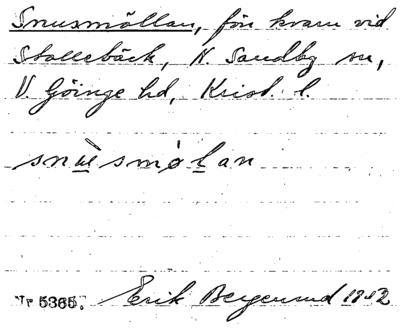 Snusmöllan, förr kvarn vid
Stallebäck, N. Sandby sn,
V. Göinge hd, Krist. l.
snùsmø̀lan
Nr 5365. Erik Bergerud 1912